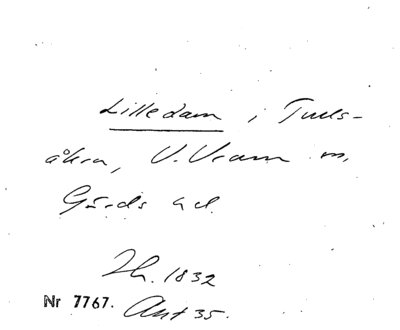 Lilledam i Tuels-
åkra, V. Vram m,
Gärds hd.
Lh. 1832
Nr 7767. Akt 35.